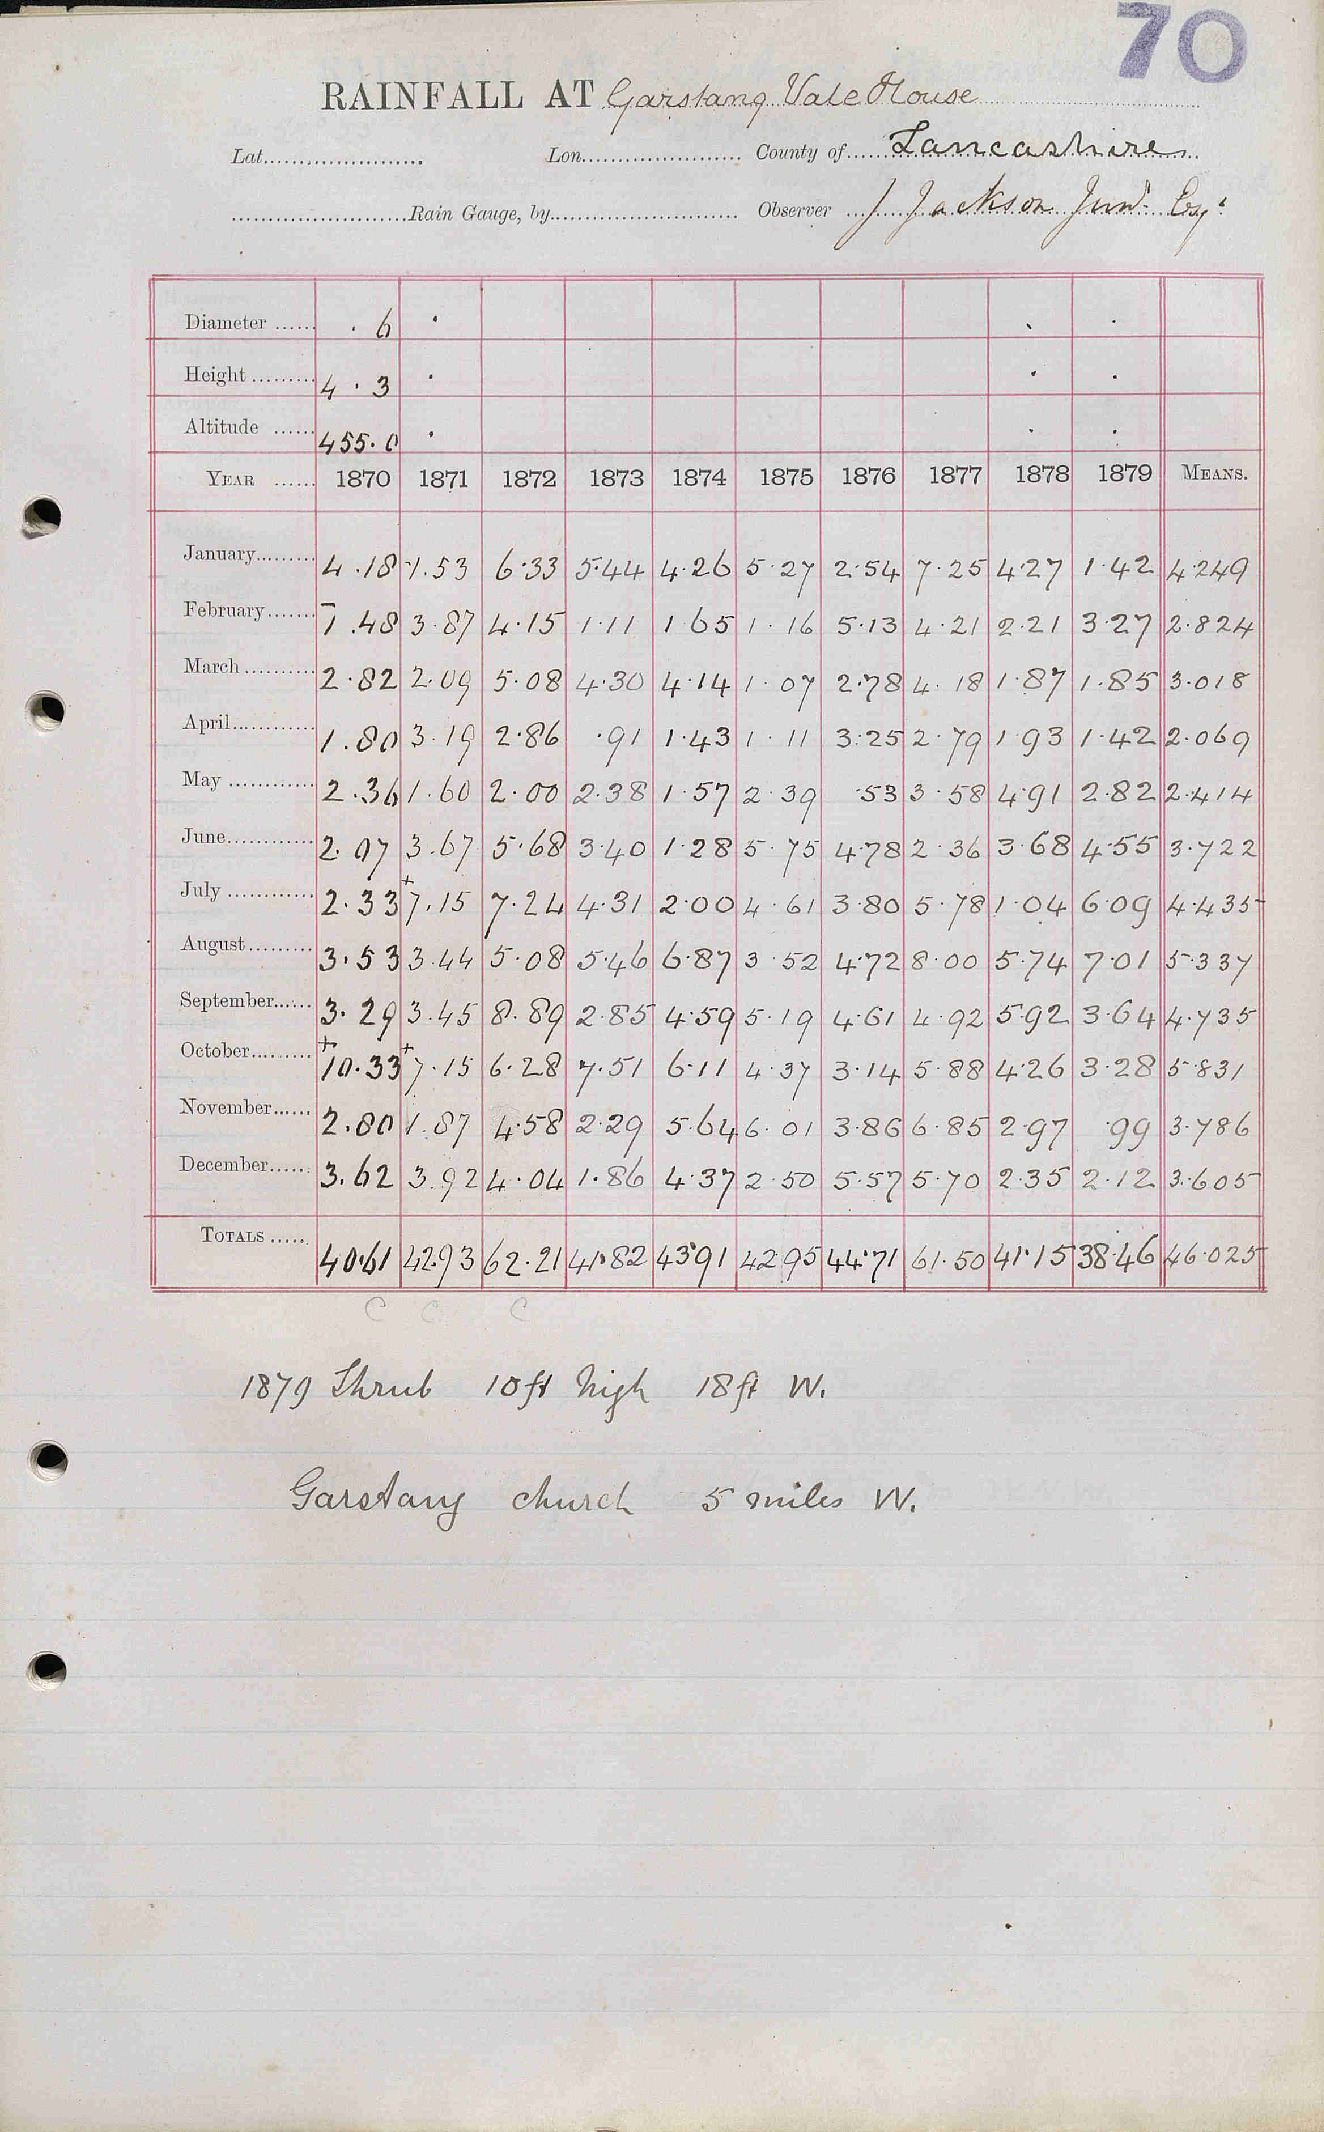 70
RAINFALL AT Garstang Vale House
Lat. Lon. County of Lancashire
Rain Gauge, by Observer J Jackson Junr. Esqr.
Diameter . 6 . . .
Height 4 . 3 . . .
Altitude 455.0 . . .
YEAR 1870 1871 1872 1873 1874 1875 1876 1877 1878 1879 MEANS.
January 4.18 1.53 6.33 5.44 4.26 5.27 2.54 7.25 4.27 1.42 4.249
February 1.48 3.87 4.15 1.11 1.65 1.16 5.13 4.21 2.21 3.27 2.824
March 2.82 2.09 5.08 4.30 4.14 1.07 2.78 4.18 1.87 1.85 3.018
April 1.80 3.19 2.86 .91 1.43 1.11 3.25 2.79 1.93 1.42 2.069
May 2.36 1.60 2.00 2.38 1.57 2.39 .53 3.58 4.91 2.82 2.414
June 2.07 3.67 5.68 3.40 1.28 5.75 4.78 2.36 3.68 4.55 3.722
July 2.33 +7.15 7.24 4.31 2.00 4.61 3.80 5.78 1.04 6.09 4.435
August 3.53 3.44 5.08 5.46 6.87 3.52 4.72 8.00 5.74 7.01 5.337
September 3.29 3.45 8.89 2.85 4.59 5.19 4.61 4.92 5.92 3.64 4.735
October +10.33 +7.15 6.28 7.51 6.11 4.37 3.14 5.88 4.26 3.28 5.831
November 2.80 1.87 4.58 2.29 5.64 6.01 3.86 6.85 2.97 .99 3.786
December 3.62 3.92 4.04 1.86 4.37 2.50 5.57 5.70 2.35 2.12 3.605
TOTALS 40.61 42.93 62.21 41.82 43.91 42.95 44.71 61.50 41.15 38.46 46.025
C C C
1879 Shrub 10ft high 18ft W.
Garstang church 5 miles W.